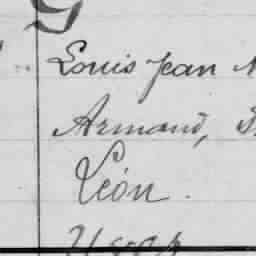 G
Louis Jean
Armand,
Léon.